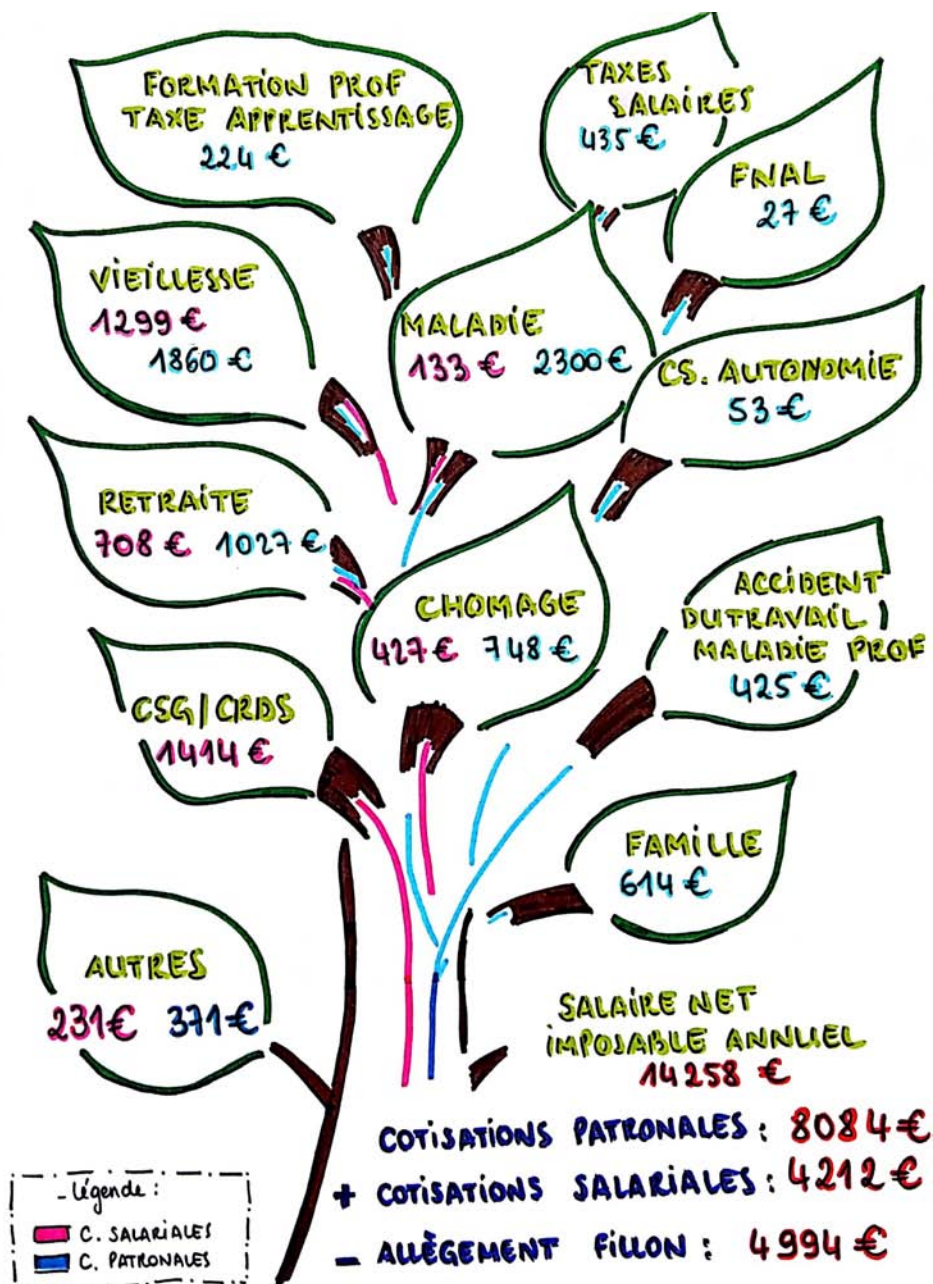 FORMATION PROF
TAXE APPRENTISSAGE
224 €
TAXES
SALAIRES
435 €
FNAL
27 €
VIEILLESSE
1299 €
1860 €
MALADIE
133 € 2300 €
CS. AUTONOMIE
53 €
RETRAITE
708 € 1027 €
CHOMAGE
427 € 748 €
ACCIDENT
DU TRAVAIL /
MALADIE PROF
425 €
CSG / CRDS
1414 €
FAMILLE
614 €
AUTRES
231 € 371 €
SALAIRE NET
IMPOSABLE ANNUEL
14 258 €
COTISATIONS PATRONALES : 8084 €
+ COTISATIONS SALARIALES : 4212 €
- ALLÈGEMENT FILLON : 4 994 €
- Légende :
C. SALARIALES
C. PATRONALES